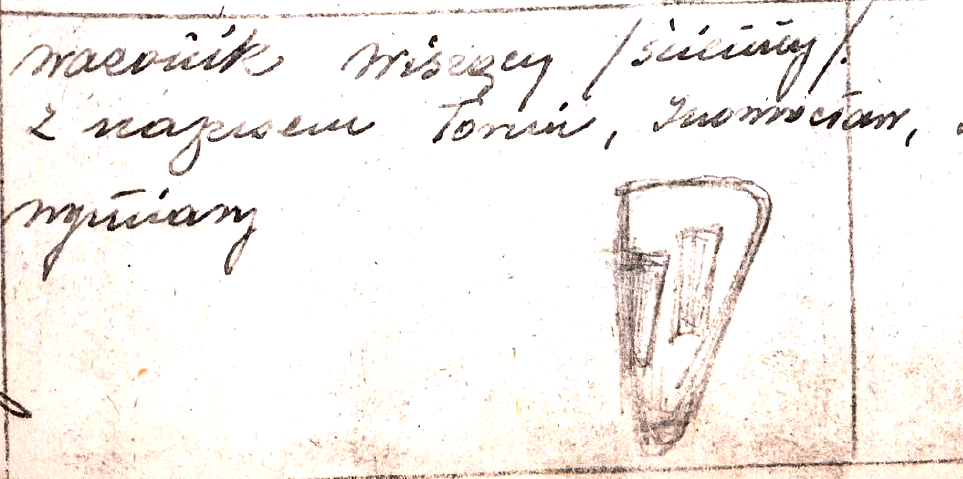 wazonik wiszący /ścienny/.
z napisem Toruń, Inowrocław,
wymiary